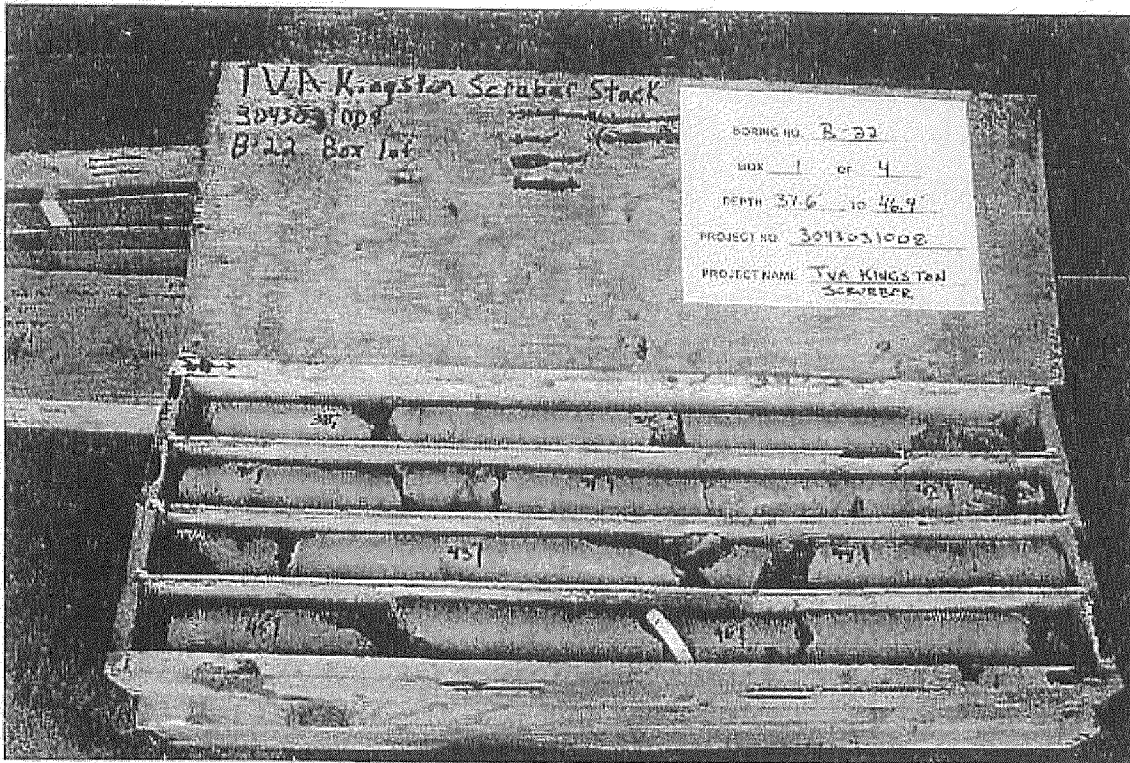 TVA-Kingston Scruber Stack
3043031008
B-22 Box 1 of
BORING NO. B-22
BOX 1 OF 4
DEPTH 37.6 TO 46.9'
PROJECT NO. 3043031008
PROJECT NAME TVA KINGSTON
SCRUBBER
38
41
42
43
44
45